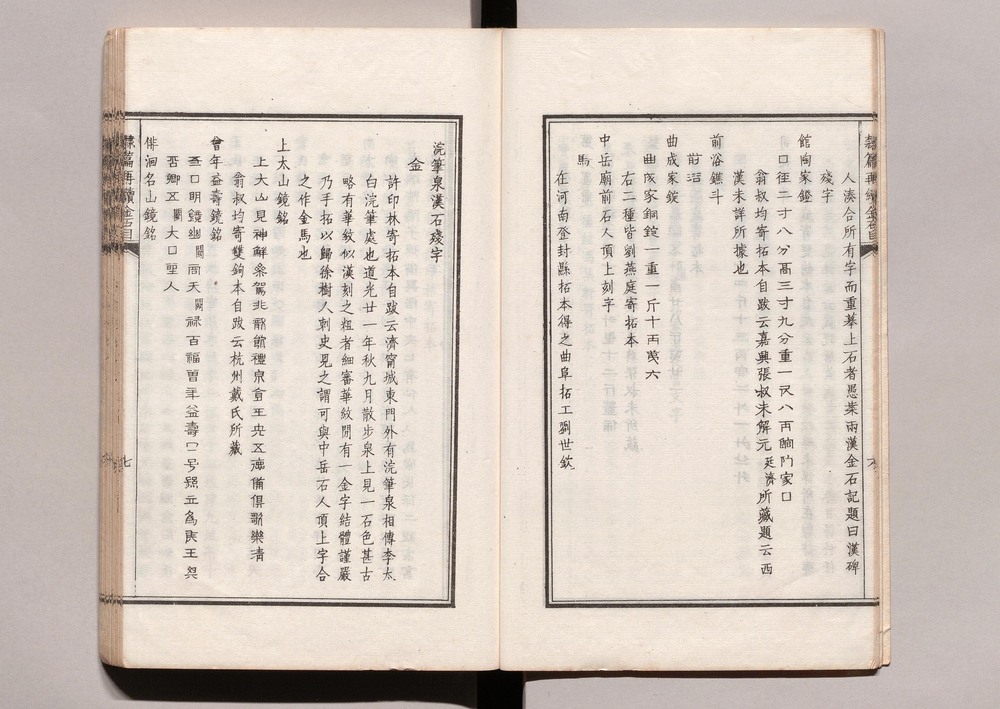 隸篇再續金石目
人湊合所有字而重摹上石者愚葉兩漢金石記題曰漢碑
殘字
館陶家鐙
口徑二寸八分高三寸九分重一斤八兩
翁叔均寄拓本自跋云嘉興張叔未解元廷濟所藏題云西
漢未詳所據也
前浴鐎斗
前浴
曲成家錠
曲成家銅錠一重一斤十兩第六
右二種皆劉燕庭寄拓本
中岳廟前石人頂上刻字
馬
在河南登封縣拓本得之曲阜拓工劉世欽
浣筆泉漢石殘字
金
許印林寄拓本自跋云濟甯城東門外有浣筆泉相傳李太
白浣筆處也道光廿一年秋九月散步泉上見一石色甚古
略有華紋似漢刻之粗者細審華紋閒有一金字結體謹嚴
乃手拓以歸徐樹人刺史見之謂可與中岳石人頂上字合
之作金馬也
上太山鏡銘
上大山見神鮮
翁叔均寄雙鉤本自跋云杭州戴氏所藏
曾年益壽鏡銘
口明鏡幽闕同天闕祿百福曾年益壽
徘徊名山鏡銘
隸篇再續金石目
七